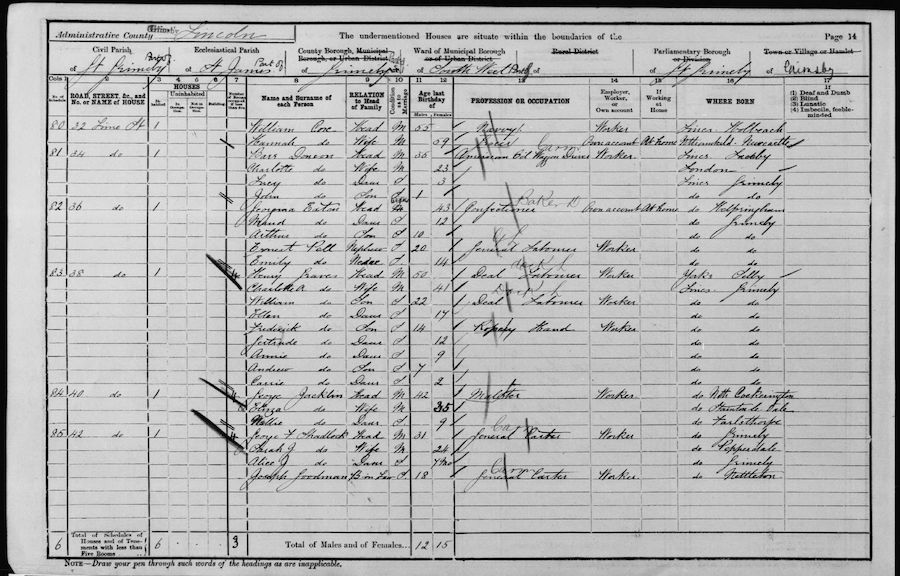 Administrative County Lincoln The undermentioned Houses are situate within the boundaries of the Page 14
Civil Parish Ecclesiastical Parish County Borough, Municipal Borough, or Urban District Ward of Municipal Borough or of Urban District Rural District Parliamentary Borough or Division Town or Village or Hamlet
of Part of Gt Grimsby of St James Part of of Grimsby of South West Part of of of Gt Grimsby of Grimsby
Cols. 1 2 3 4 5 6 7 8 9 10 11 12 13 14 15 16 17
No. of Schedule ROAD, STREET, &c., and No. or NAME of HOUSE HOUSES Inhabited Uninhabited In Occupation Not in Occupation Building Name and Surname of each Person RELATION to Head of Family Condition as to Marriage Age last Birthday of Males Females PROFESSION OR OCCUPATION Employer, Worker, or Own account If Working at Home WHERE BORN (1) Deaf and Dumb (2) Blind (3) Lunatic (4) Imbecile, feeble-minded
80 32 Lime St 1 William Coe Head M 55 Navvy Worker Lincs Holbeach
Hannah do Wife M 59 Grocer Own account At home Newcastle
81 34 do 1 Head M 35 American Oil Waggon Driver Worker Lincs Laceby
Charlotte do Wife M 23 London
Lucy do Daur S 3 Lincs Grimsby
John do Son S 1 do do
82 36 do 1 Eaton Head 43 Confectioner Baker Own account At home do Helpringham
Maud do Daur S 12 do Grimsby
Arthur do Son S 10 do do
Ernest Nephew S 20 General Labourer Worker do do
Emily do Niece S 14 do do
83 38 do 1 Henry Graves Head M 50 Deal Labourer Worker Yorks Selby
Charlotte A do Wife M 41 Lincs Grimsby
William do Son S 22 Deal Labourer Worker do do
Ellen do Daur S 17 do do
Frederick do Son S 14 Ropery Hand Worker do do
Gertrude do Daur S 12 do do
Annie do Daur S 9 do do
Andrew do Son S 7 do do
Carrie do Daur S 2 do do
84 40 do 1 George Jacklin Head M 42 Maltster Worker do Nth Cockerington
Eliza do Wife M 35 do Stainton le Vale
Nellie do Daur S 9 do Farlesthorpe
85 42 do 1 George F Shadlock Head M 31 General Carter Worker do Grimsby
Sarah J do Wife M 24 do
Alice J do Daur S 7 mo do Grimsby
Joseph Goodman B in Law S 18 General Carter Worker do Nettleton
6 Total of Schedules of Houses and of Tenements with less than Five Rooms 6 3 Total of Males and of Females... 12 15
NOTE—Draw your pen through such words of the headings as are inapplicable.